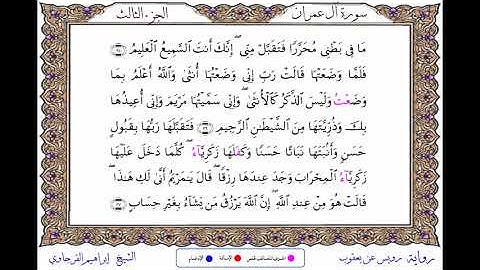 سورة آل عمران
الجزء الثالث
مَا فِى بَطْنِى مُحَرَّرًا فَتَقَبَّلْ مِنِّى إِنَّكَ أَنتَ السَّمِيعُ الْعَلِيمُ
فَلَمَّا وَضَعَتْهَا قَالَتْ رَبِّ إِنِّى وَضَعْتُهَا أُنثَىٰ وَاللَّهُ أَعْلَمُ بِمَا
وَضَعَتْ وَلَيْسَ الذَّكَرُ كَالْأُنثَىٰ وَإِنِّى سَمَّيْتُهَا مَرْيَمَ وَإِنِّى أُعِيذُهَا
بِكَ وَذُرِّيَّتَهَا مِنَ الشَّيْطَٰنِ الرَّجِيمِ فَتَقَبَّلَهَا رَبُّهَا بِقَبُولٍ
حَسَنٍ وَأَنۢبَتَهَا نَبَاتًا حَسَنًا وَكَفَلَهَا زَكَرِيَّاءُ كُلَّمَا دَخَلَ عَلَيْهَا
زَكَرِيَّاءُ الْمِحْرَابَ وَجَدَ عِندَهَا رِزْقًا قَالَ يَٰمَرْيَمُ أَنَّىٰ لَكِ هَٰذَا
قَالَتْ هُوَ مِنْ عِندِ اللَّهِ إِنَّ اللَّهَ يَرْزُقُ مَن يَشَاءُ بِغَيْرِ حِسَابٍ
رواية رويس عن يعقوب
الإمالة
الإشمام
الشيخ إبراهيم الفرجاوي